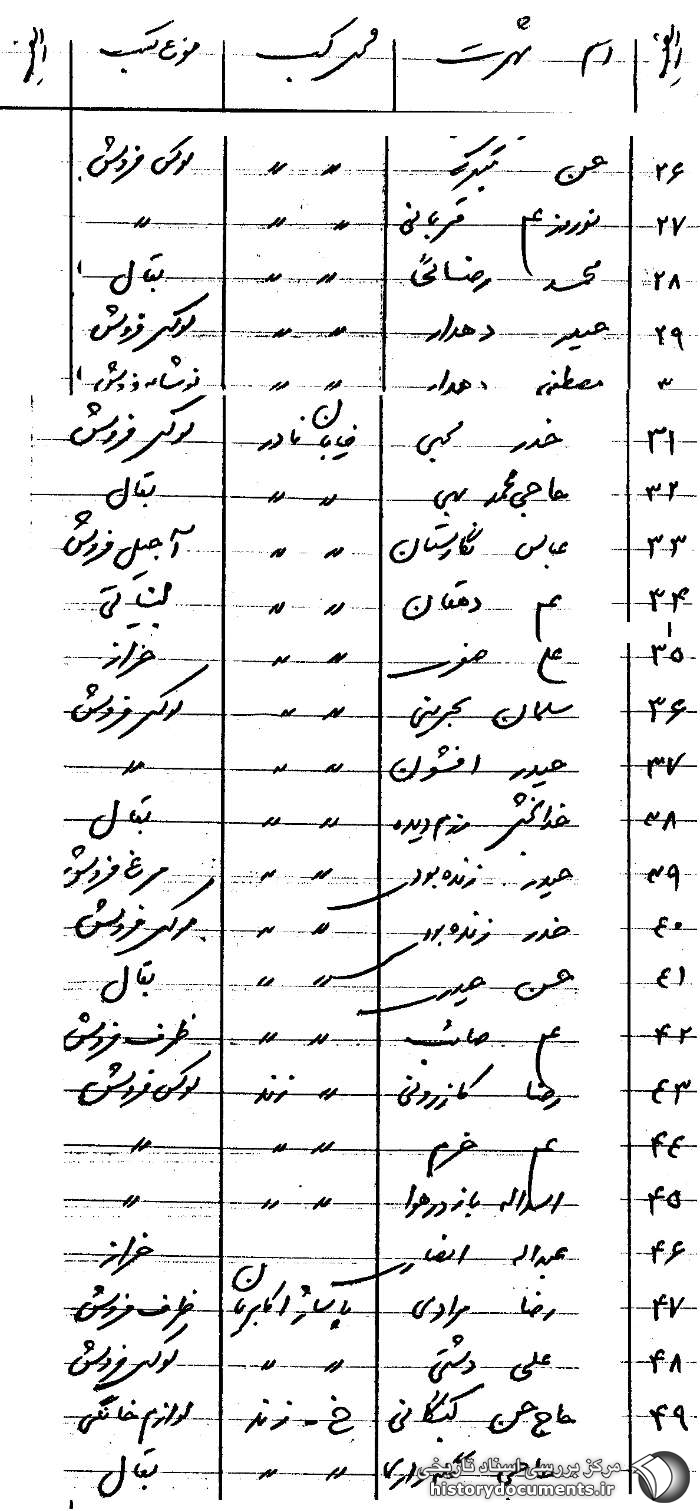 اسم شهرت محل کسب نوع کسب
۲۶ حسن " " لوکس فروش
۲۷ نوروزعلی قربانی " " "
۲۸ محمد " " بقال
۲۹ حیدر دهدار " " لوکس فروش
۳۰ مصطفی دهدار " " نوشابه فروش
۳۱ خدر خیابان نادر لوکس فروش
۳۲ حاجی محمد " " بقال
۳۳ عباس نگارستان " " آجیل فروش
۳۴ علی دهقان " " لبنیاتی
۳۵ علی صفری " " خراز
۳۶ سلمان بحرینی " " لوکس فروش
۳۷ حیدر افشون " " "
۳۸ خدابخش رزم دیده " " بقال
۳۹ حیدر زنده بودی " " مرغ فروش
۴۰ خدر زنده بودی " " فروش
۴۱ حسن حیدری " " بقال
۴۲ علی صائب " " ظرف فروش
۴۳ رضا کازرونی " زند لوکس فروش
۴۴ علی خرم " " "
۴۵ اسداله باددرهوا " " "
۴۶ عبداله انصاری خراز
۴۷ رضا مرادی پاساژ اکابریان ظرف فروش
۴۸ علی دشتی " " لوکس فروش
۴۹ حاج حسن کبگانی خ - زند لوازم خانگی
" " بقال
مرکز بررسی اسناد تاریخی
historydocuments.ir